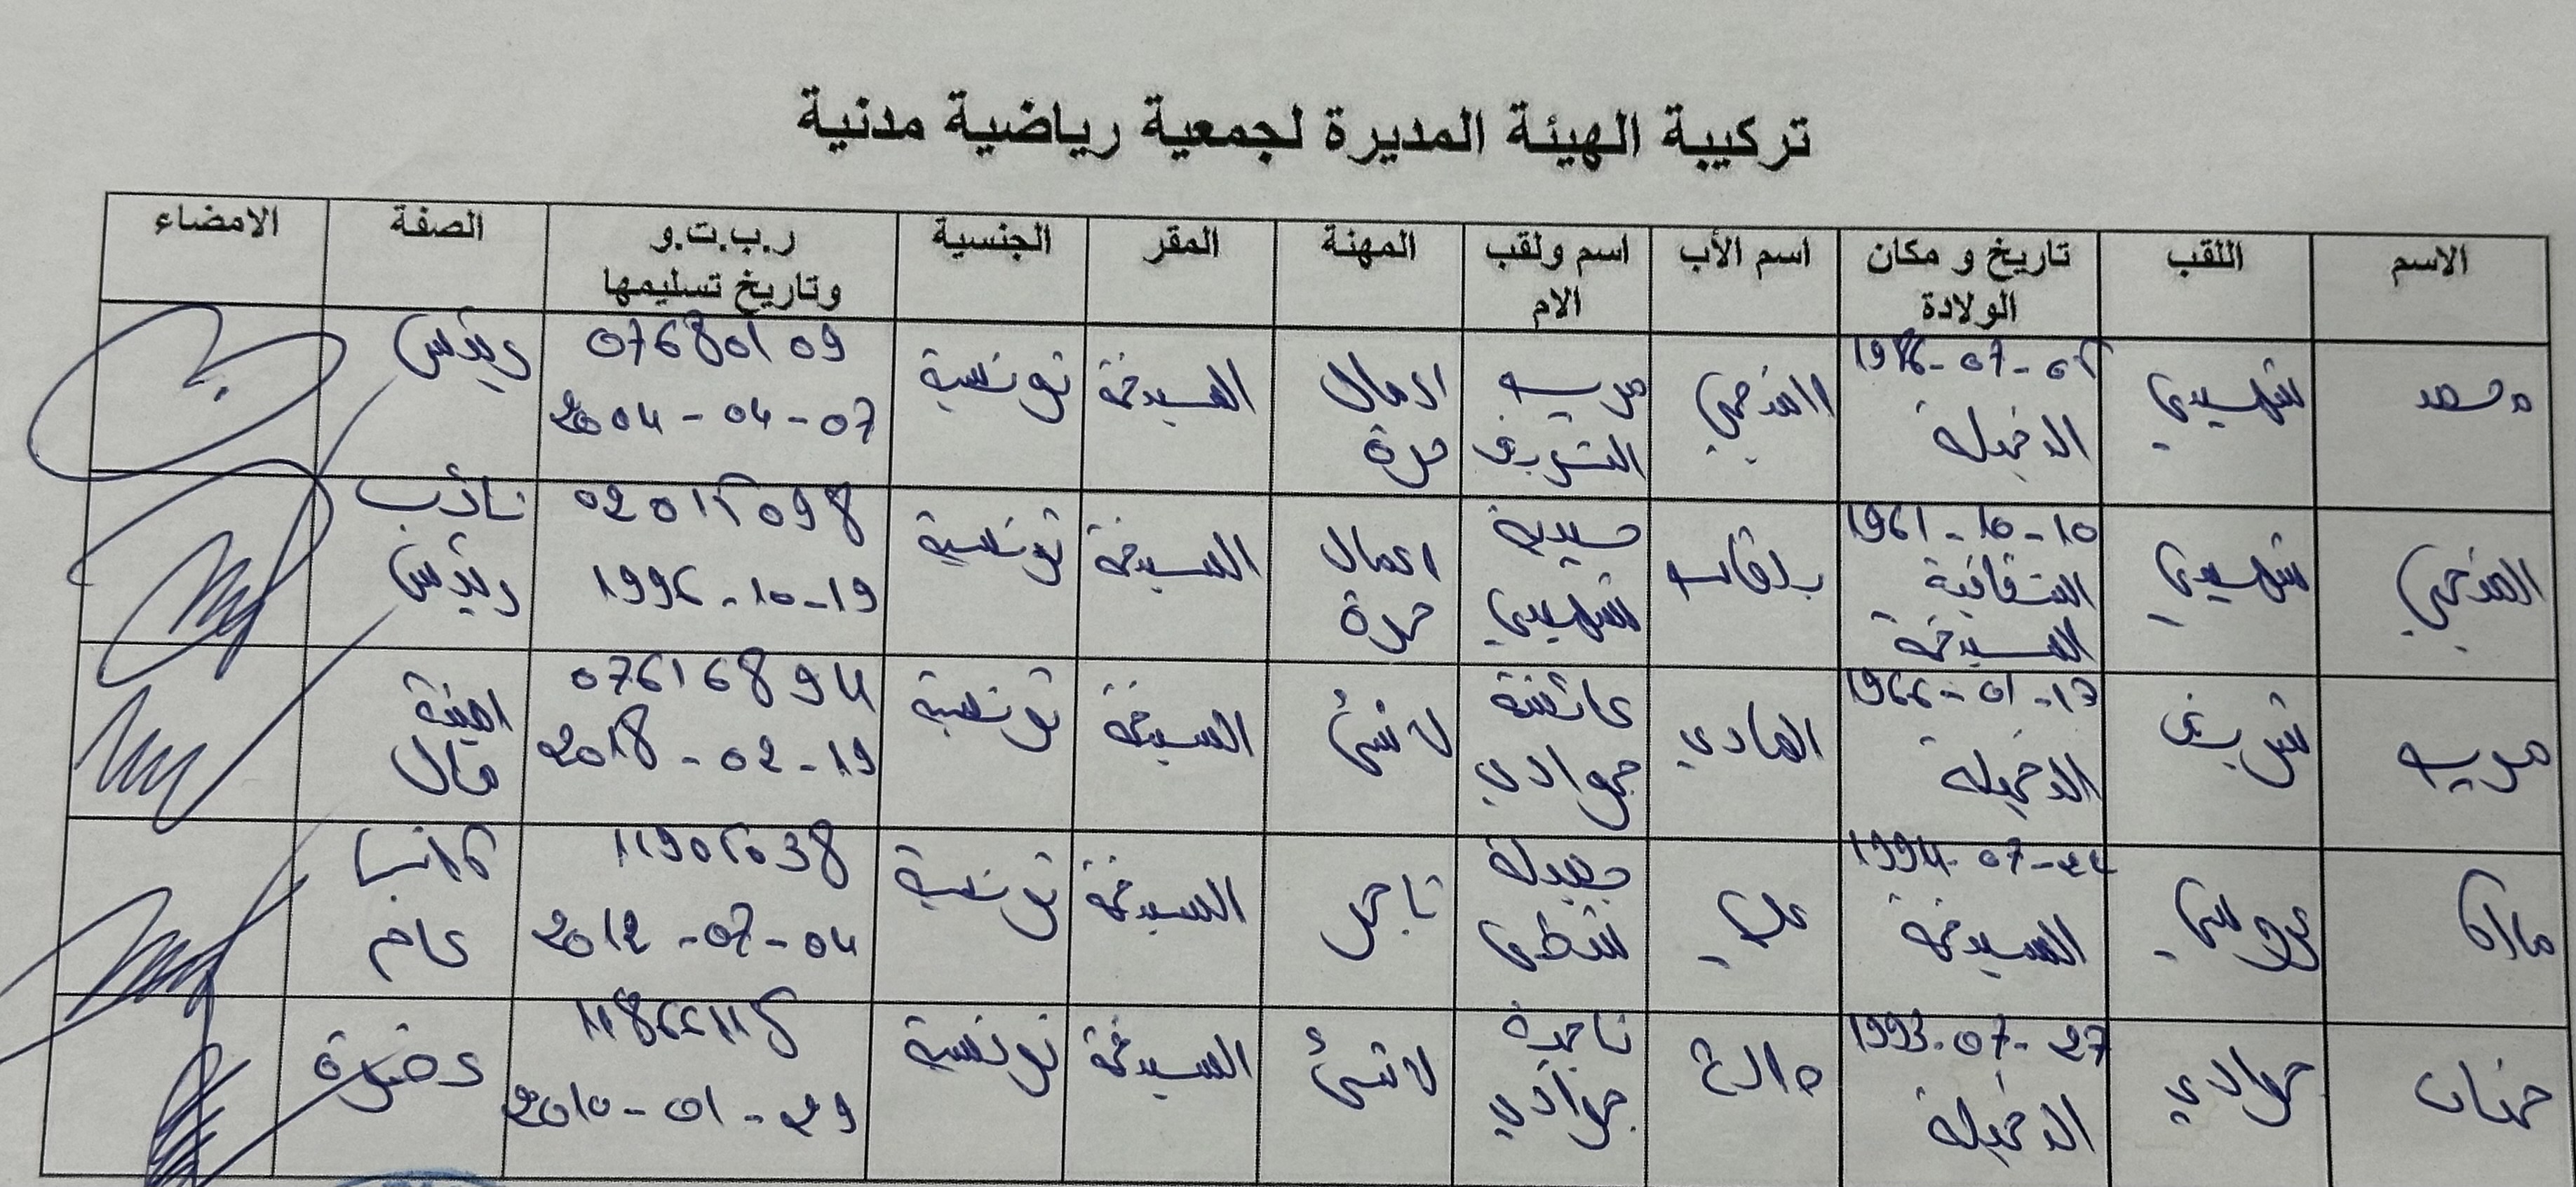 تركيبة الهيئة المديرة لجمعية رياضية مدنية
الاسم اللقب تاريخ و مكان الولادة اسم الأب اسم ولقب الام المهنة المقر الجنسية ر.ب.ت.و وتاريخ تسليمها الصفة الامضاء
محمد 07-05 الدخيلة المنجي مريم الشريف اعمال حرة السيخة تونسية 07680109 2004-04-07 رئيس
المنجي 1961-10-10 بلقاسم اعمال حرة تونسية 02015098 1996-10-19 نائب رئيس
مريم شريف 1966-01-13 الدخيلة الهادي عائشة جوادي لا شئ تونسية 07616894 2018-02-19 امينة مال
1994-07-24 علي جميلة تاجر تونسية 11905038 2012-07-04 كاتب عام
حنان جوادي 1993-07-27 الدخيلة صالح ناجية جوادي لا شئ تونسية 2010-01-29 عضوة